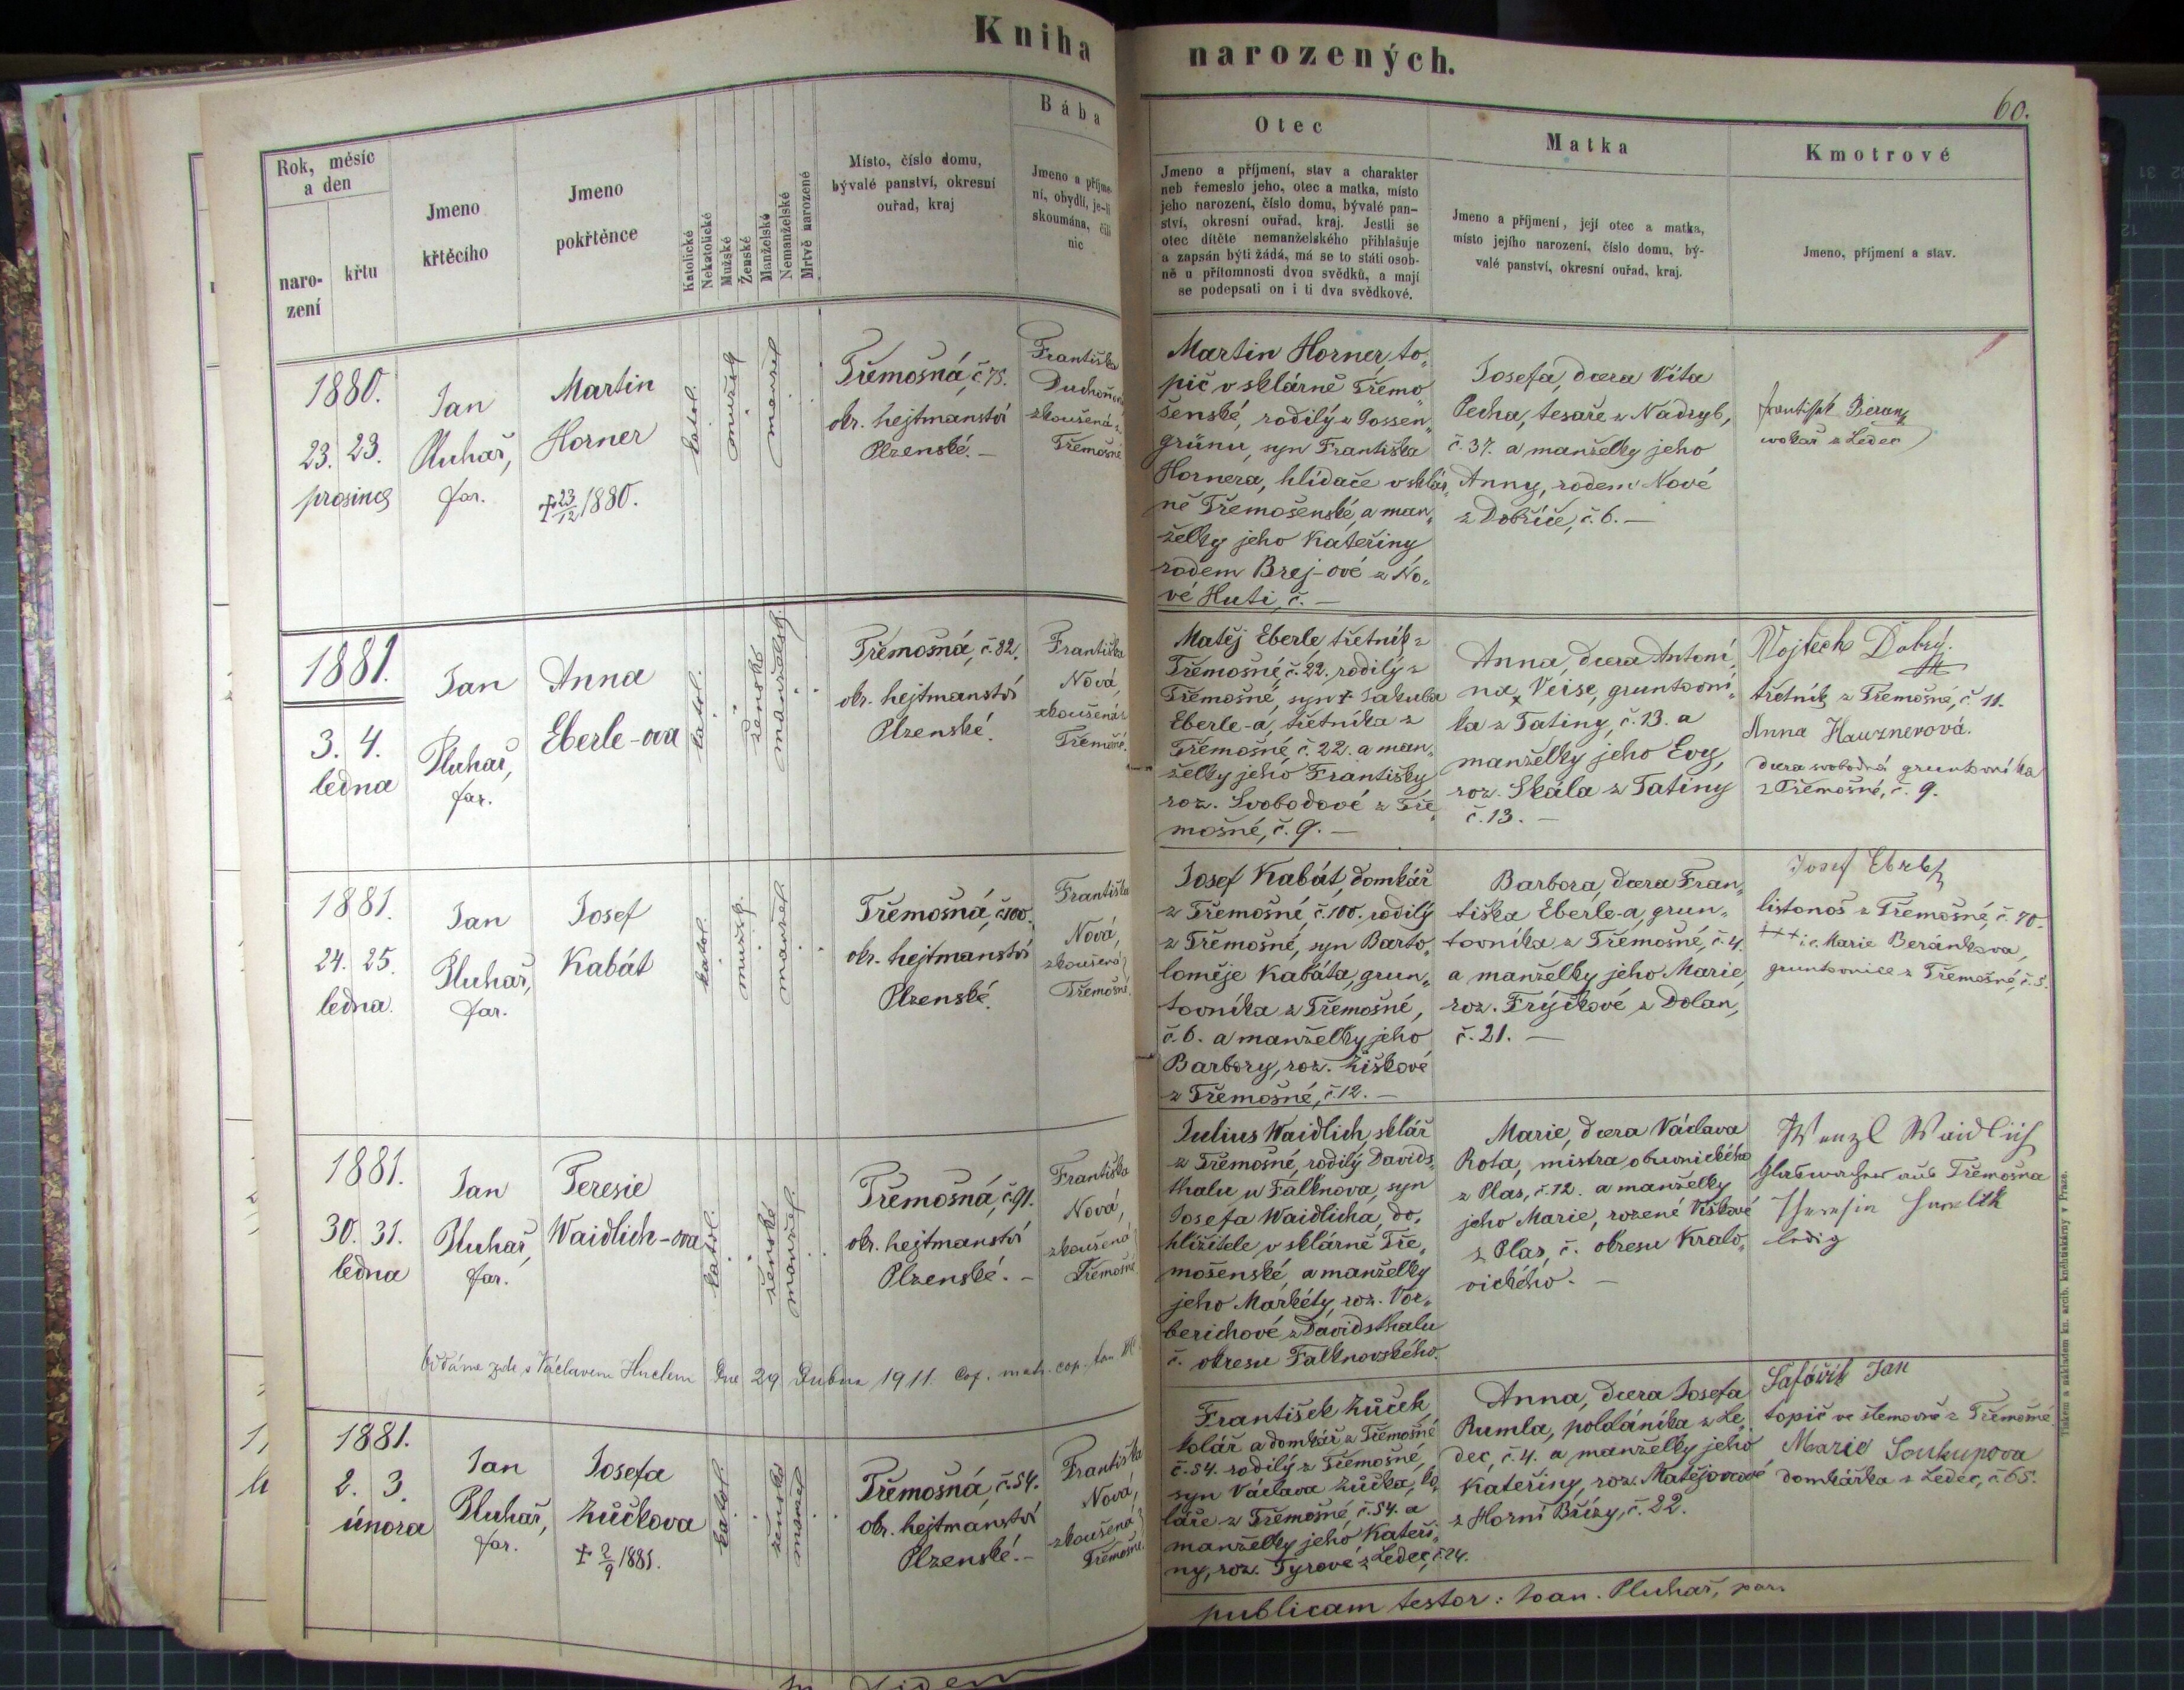 Kniha narozených.
60.
Rok, měsíc
a den
naro-
zení
křtu
Jmeno
křtěcího
Jmeno
pokřtěnce
Katolické
Nekatolické
Mužské
Ženské
Manželské
Nemanželské
Mrtvě narozené
Místo, číslo domu,
bývalé panství, okresní
ouřad, kraj
Bába
Jmeno a příjme-
ní, obydlí, je-li
skoumána, čili
nic
Otec
Jmeno a příjmení, stav a charakter
neb řemeslo jeho, otec a matka, místo
jeho narození, číslo domu, bývalé pan-
ství, okresní ouřad, kraj. Jestli se
otec dítěte nemanželského přihlašuje
a zapsán býti žádá, má se to státi osob-
ně u přítomnosti dvou svědků, a mají
se podepsati on i ti dva svědkové.
Matka
Jmeno a příjmení, její otec a matka,
místo jejího narození, číslo domu, bý-
valé panství, okresní ouřad, kraj.
Kmotrové
Jmeno, příjmení a stav.
1880.
23. 23.
prosince
Jan
Pluhař,
far.
Martin
Horner
† 23/12 1880.
katol.
mužsk
manžel
Třemošná, č. 75.
okr. hejtmanství
Plzenské. –
Františka
zkoušená z
Třemošné
Martin Horner, to„
pič v sklárně Třemo„
šenské, rodilý z Gossen„
grünu, syn Františka
Hornera, hlídače v sklár„
ně Třemošenské, a man„
želky jeho Kateřiny
rodem Brej-ové z No„
vé Huti, č. –
Josefa, dcera Víta
Pecha, tesaře z Nadryb,
č. 37. a manželky jeho
Anny, rodem Nové
z Dobříče, č. 6. –
František Beran
z Ledec
1881.
3. 4.
ledna
Jan
Pluhař,
far.
Anna
Eberle-ova
katol.
ženské
manželsk.
Třemošná, č. 82.
okr. hejtmanství
Plzenské.
Františka
Nová,
zkoušená z
Třemošné.
Matěj Eberle, třetník z
Třemošné č. 22. rodilý z
Třemošné, syn † Jakuba
Eberle-a, třetníka z
Třemošné č. 22. a man„
želky jeho Františky
roz. Svobodové z Tře„
mošné, č. 9. –
Anna, dcera Antoní„
na Veise, gruntovní„
ka z Tatiny, č. 13. a
manželky jeho Evy,
roz. Skála z Tatiny
č. 13. –
Vojtěch Dobrý.
třetník z Třemošné, č. 11.
Anna Hauznerová.
dcera svobodná gruntovníka
z Třemošné, č. 9.
1881.
24. 25.
ledna.
Jan
Pluhař,
far.
Josef
Kabát
katol.
mužsk.
manžel.
Třemošná, č. 100.
okr. hejtmanství
Plzenské.
Františka
Nová,
zkoušená z
Třemošné.
Josef Kabát, domkář
z Třemošné, č. 100. rodilý
z Třemošné, syn Barto„
loměje Kabáta, grun„
tovníka z Třemošné,
č. 6. a manželky jeho
Barbory, roz. Žiškové
z Třemošné, č. 12. –
Barbora, dcera Fran„
tiška Eberle-a, grun„
tovníka z Třemošné, č. 4.
a manželky jeho Marie,
roz. Frýčkové z Dolan,
č. 21. –
Josef Ebrle
listonoš z Třemošné, č. 70.
+++ Marie Beránkova,
gruntovnice z Třemošné, č. 5.
1881.
30. 31.
ledna
Jan
Pluhař,
far.
Teresie
Waidlich-ova
katol.
ženské
manžel.
Třemošná, č. 91.
okr. hejtmanství
Plzenské. –
Františka
Nová,
zkoušená z
Třemošné
Julius Waidlich, sklář
z Třemošné, rodilý Davids„
thalu u Falknova, syn
Josefa Waidlicha, do„
hlížitele v sklárně Tře„
mošenské, a manželky
jeho Markéty, roz. Vor„
berichové z Davidsthalu
č. okresu Falknovského.
Marie, dcera Václava
Rota, mistra obuvnického
z Plas, č. 12. a manželky
jeho Marie, rozené Viškové
z Plas, č. okresu Kralo„
vického. –
Wenzl Waidlich
Glasmacher aus Třemošna
ledig
Oddána zde s Václavem Huclem dne 29 dubna 1911.
1881.
2. 3.
února
Jan
Pluhař,
far.
Josefa
Žůčkova
† 2/9 1881.
katol.
ženské
manžel
Třemošná, č. 54.
okr. hejtmanství
Plzenské. –
Františka
Nová,
zkoušená z
Třemošné.
František Žůček,
kolář a domkář z Třemošné
č. 54. rodilý z Třemošné,
syn Václava Žůčka, ko„
láře z Třemošné, č. 54. a
manželky jeho Kateři„
ny, roz. Tyrové z Ledec, č. 24.
Anna, dcera Josefa
Rumla, poldáníka z Le„
dec, č. 4. a manželky jeho
Kateřiny, roz. Matějovcové
z Horní Břízy, č. 22.
Safářík Jan
topič ve z Třemošné
Marie Soukupova
domkářka z Ledec, č. 65.
publicam testor: Joan. Pluhař, par.
Tiskem a nákladem kn. arcib. knihtiskárny v Praze.